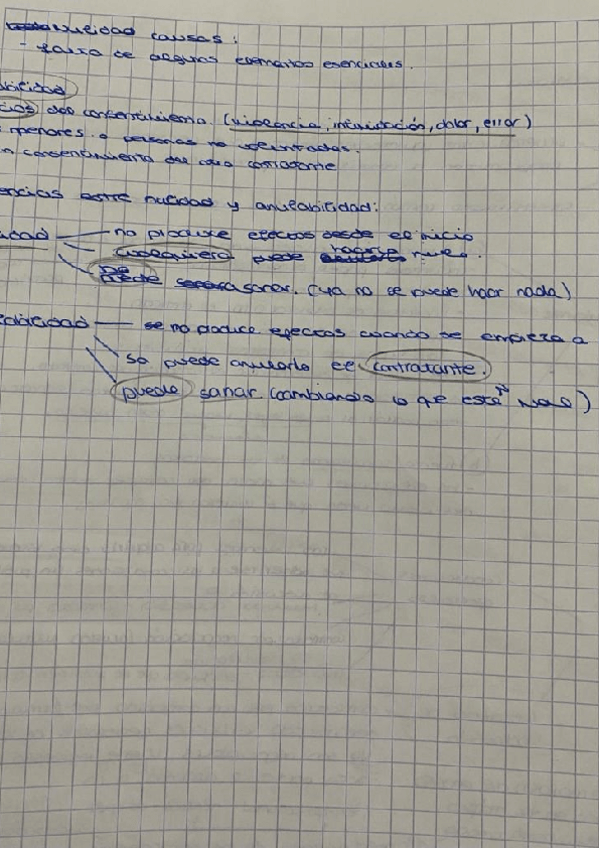 nulidad causas:
- falta de algunos elementos esenciales.
vicios del consentimiento (violencia, intimidación, dolor, error)
menores o personas no
consentimiento del otro contratante
entre nulidad y anulabilidad:
no produce efectos desde el inicio
cualquiera puede hacerlo nulo.
sanar. (ya no se puede hacer nada)
se no produce efectos cuando se empieza a
so puede anularlo el contratante.
puede sanar (cambiando lo que está mal)